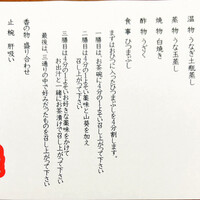 温物 うなぎ土瓶蒸し
蒸物 うな玉蒸し
焼物 白焼き
酢物 うざく
食事 ひつまぶし
まずはおひつに入ったひつまぶしを4分割します。
一膳目は、お茶碗に4分の1よそい
そのまま召し上がって下さい
二膳目は4分の1よそい薬味と山葵を加え
召し上がって下さい
三膳目は4分の1よそいお好きな薬味をかけて
お出汁と一緒にお茶漬けで召し上がって下さい
最後は、三通りの中で好みだったものを召し上がって下さい
香の物 盛り合わせ
止椀 肝吸い